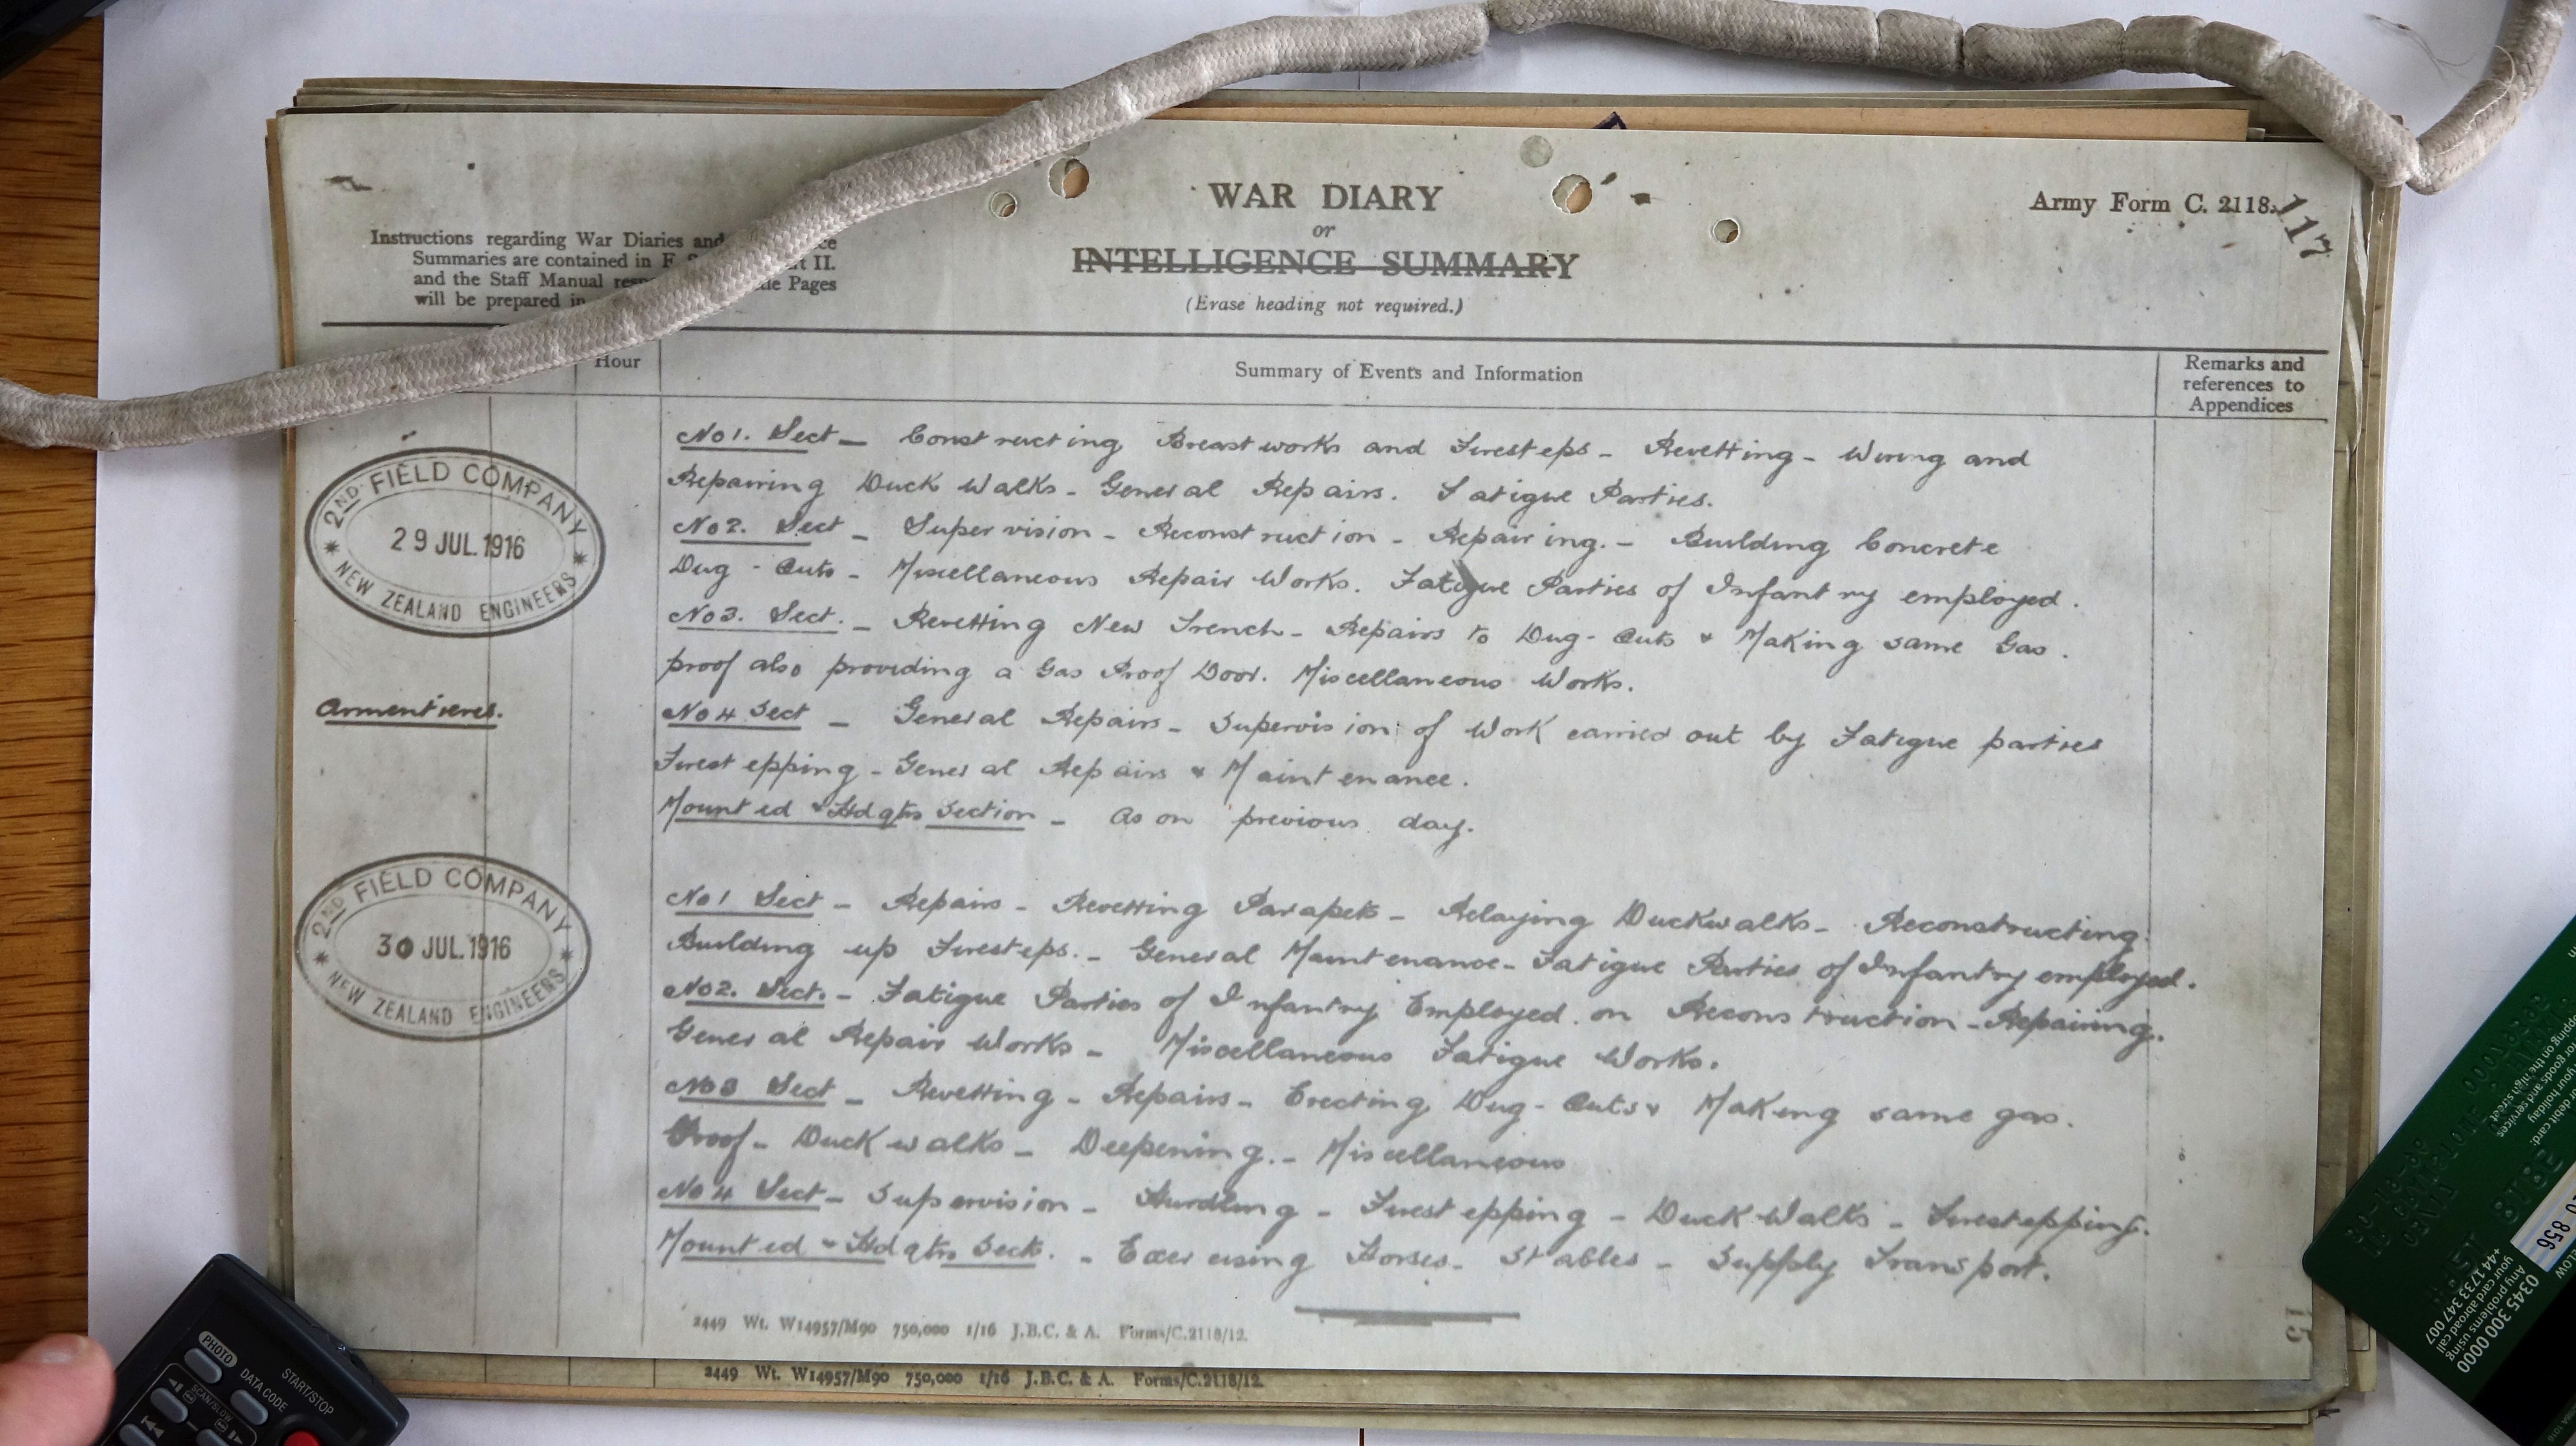 WAR DIARY
or
INTELLIGENCE SUMMARY
(Erase heading not required.)
Army Form C. 2118.
117
Instructions regarding War Diaries and
Summaries are contained in F. II.
and the Staff Manual Pages
will be prepared in
Hour
Summary of Events and Information
Remarks and
references to
Appendices
2ND FIELD COMPANY
29 JUL.1916
NEW ZEALAND ENGINEERS
No1. Sect - Constructing Breastworks and Firesteps - Revetting - Wiring and
Repairing Duck Walks - General Repairs. Fatigue Parties.
No2. Sect - Supervision - Reconstruction - Repairing. - Building Concrete
Dug-Outs - Miscellaneous Repair Works. Fatigue Parties of Infantry employed.
No3. Sect. - Revetting New Trench - Repairs to Dug-Outs & Making same Gas.
proof also providing a Gas Proof Door. Miscellaneous Works.
Armentieres.
No4 Sect - General Repairs - Supervision of Work carried out by Fatigue parties
Firestepping - General Repairs & Maintenance.
Mounted & Hdqtrs Section - As on previous day.
2ND FIELD COMPANY
30 JUL.1916
NEW ZEALAND ENGINEERS
No1 Sect - Repairs - Revetting Parapets - Relaying Duckwalks - Reconstructing.
Building up Firesteps. - General Maintenance - Fatigue Parties of Infantry employed.
No2. Sect. - Fatigue Parties of Infantry Employed on Reconstruction - Repairing.
General Repair Works - Miscellaneous Fatigue Works.
No3 Sect - Revetting - Repairs - Erecting Dug-Outs & Making same gas.
Proof - Duckwalks - Deepening. - Miscellaneous
No4 Sect - Supervision - Hurdling - Firestepping - Duck Walks - Firestepping.
Mounted & Hdqtrs Sect. - Exercising Horses - Stables - Supply Transport.
2449 Wt. W14957/M90 750,000 1/16 J.B.C. & A. Forms/C.2118/12.
2449 Wt. W14957/M90 750,000 1/16 J.B.C. & A. Forms/C.2118/12.
15
PHOTO
DATA CODE
START/STOP
SCAN/SLOW
0345 300 0000
Any problems using
your card abroad call
+44 1733 347 007